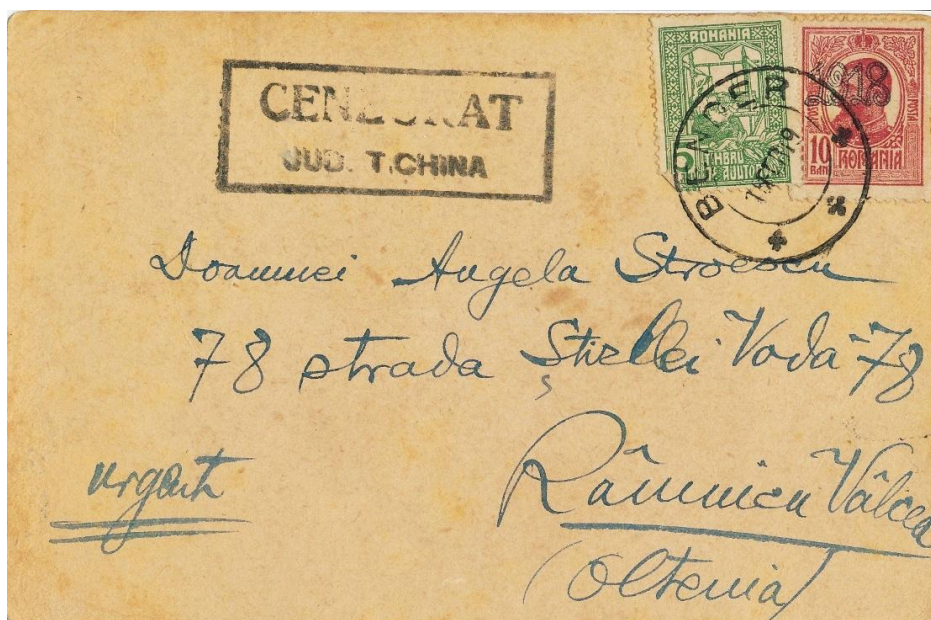 CENZURAT
JUD. T.CHINA
ROMANIA
5 TIMBRU
AJUTOR
1918
POSTA
10
BANI
ROMANIA
BENDER
19
Doamnei Angela Stroescu
78 strada Știrbei Vodă 78
urgent
Râmnicu Vâlcea
(Oltenia)